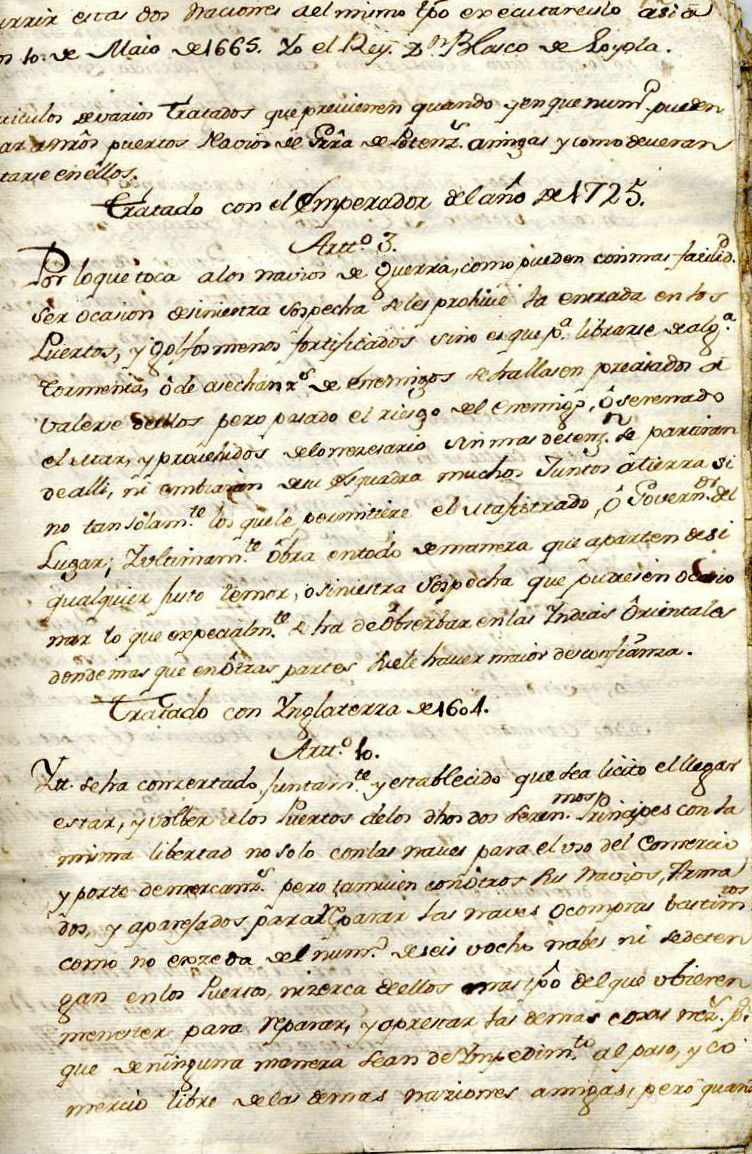 urrir estas dos Naciones del mismo tpô executareislo asi a
10. de Maio de 1665. Yo el Rey. Dn. Blasco de Loyola.
rticulos de varios Tratados que previenen quando y en que numº. pueden
ar a nrôs puertos Navios de Grrâ de Potenzs. amigas y como deveran
tarse en êllos.
Tratado con el Emperador del año de 1725.
Arttº. 3.
Por lo que toca a los navios de Guerra, como pueden con mas facilid.
ser ocasion de siniestra sospecha se les prohive la entrada en los
Puertos, y golfos menos fortificados sino es que pª. librarse de algª.
tormenta, ô de asechanzs. de Enemigos se hallasen precisados a
valerse dellos pero pasado el riesgo del enemigo, ô serenado
el Mar, y proveidos de lo necesario sin mas detenzn. se partiran
de alli, ni embiarán de su esquadra muchos Juntos a tierra si
no tan sôlamte. los que le permitiere el Majistrado, ô Governor. del
Lugar; Y ultimamte. ôbra en todo de manera que aparten de si
qualquier justo temor, o siniestra sospecha que pudiesen ocasio
nar lo que especialmte. se ha de ôbserbar en las Yndias Orientales
donde mas que en ôtras partes suele haver maior desconfianza.
Tratado con Ynglaterra de 1604.
Arttº. 10.
Ytt. se ha concertado juntamte. y establecido que sea licito el llegar
estar, y volber a los Puertos de los dhos dos Seren.mos Principes con la
misma libertad no solo con las naves para el uso del Comercio
y porte de mercanzs. pero tamvien con ôtros sus Navios, Arma
dos, y aparejados para reparar las naves o comprar bastimtos
como no exzeda del numº. de seis u ocho nabes ni se deten
gan en los Puertos, ni zerca de ellos mas tpô del que ubieren
menester para reparar, y aprestar las demas cosas nezs.
que de ninguna manera sean de Ympedimto. al paso, y co
mercio libre de las demas naziones amigas, pero quan